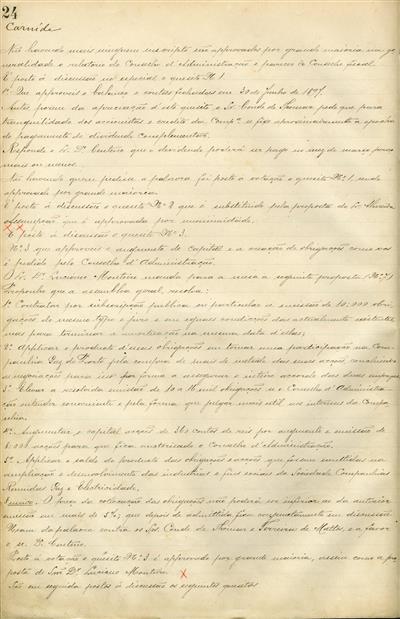 24
Carnide
Não havendo mais ninguem inscripto são approvados por grande maioria na ge
neralidade o relatorio do Conselho d'Administração e parecer do Conselho fiscal.
É posto á discussão na especial o quesito Nº 1.
1º Que approveis o balanço e contas fechadas em 30 de Junho de 1897.
Antes porem da apreciação d'este quesito o Sr. Conde de pede que para
tranquilidade dos accionistas e credito da Compª se fixe aproximadamente a epocha
do pagamento do dividendo complementar.
Responde o Sr. Dr. Centeno que o dividendo poderá ser pago no mez de março pouco
mais ou menos.
Não havendo quem pedisse a palavra foi posto á votação o quesito Nº 1, sendo
approvado por grande maioria.
É posto á discussão o quesito Nº 2 que é substituido pela proposta do Sr. Oliveira
que é approvada por unanimidade.
É posto á discussão o quesito Nº 3.
Nº 3 que approveis o augmento de capital e a creação de obrigações como vos
é pedido pelo Conselho d'Administração.
O Sr. Dr. Luciano Monteiro manda para a mesa a seguinte proposta (Nº 7)
Proponho que a assemblea geral, resolva:
1º Contractar por subscripção publica ou particular a emissão de 10:000 obri
gações do mesmo typo e juro e em eguaes condições das actualmente existentes
mas para terminar a amortisação na mesma data d'ellas;
2º Applicar o producto d'essas obrigações em tomar uma participação na Com
panhia Gaz do Porto pela compra de mais de metade das suas acções, concluindo
as negociações para isso por forma a assegurar o inteiro accordo das duas emprezas
3º Elevar a resolvida emissão de 10 a mil obrigações se o Conselho d'Administra
ção entender conveniente e pela forma que julgar mais util aos interesses da Compa
nhia.
4º Augmentar o capital acções de 360 contos de reis por augmento e emissão de
8:000 acções para que fica auctorisado o Conselho d'Administração.
5º Applicar o saldo do producto das obrigações e acções que forem emittidas na
ampliação e desenvolvimento das industrias e fins sociaes da Sociedade Companhias
Reunidas Gaz e Electricidade.
O preço da collocação das obrigações não poderá ser inferior ao da anterior
emissão em mais de 5%; que depois de admittida fica conjunctamente em discussão.
Usam da palavra contra os Srs. Conde de e Ferreira de Mattos, e a favor
o sr. Dr. Centeno.
Posto á votação o quesito Nº 3 é approvado por grande maioria, assim como a pro
posta do Snr. Dr. Luciano Monteiro.
São em seguida postos á discussão os seguintes quesitos